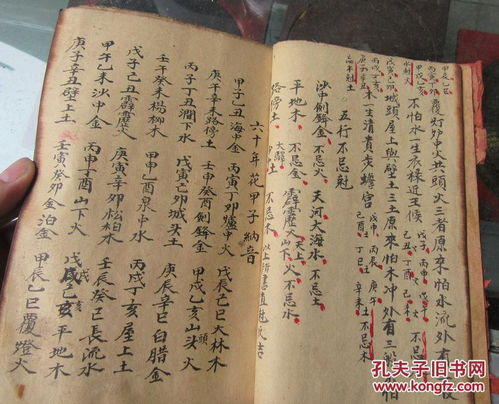 覆灯炉中火共頭火三者原來怕水流外有
不怕水生衣祿近王候
城頭屋上與壁土三土原來怕木冲外有三般不怕
木一生清貴步蟾宮
五行不忌尅
沙中劍鋒金不忌火 天河大海水不忌土
平地木 不忌金 霹靂火 天上 山下火 不忌水
路傍土 不忌木
六十年花甲子納音
甲子乙丑海中金 丙寅丁卯爐中火 戊辰己巳大林木
庚午辛未路傍土 壬申癸酉劍鋒金 甲戌乙亥山頭火
丙子丁丑澗下水 戊寅己卯城頭土 庚辰辛巳白腊金
壬午癸未楊柳木 甲申乙酉泉中水 丙戌丁亥屋上土
戊子己丑霹靂火 庚寅辛卯松柏木 壬辰癸巳長流水
甲午乙未沙中金 丙申丁酉山下火 戊戌己亥平地木
庚子辛丑壁上土 壬寅癸卯金泊金 甲辰乙巳覆燈火
孔夫子旧书网
www.kongfz.com